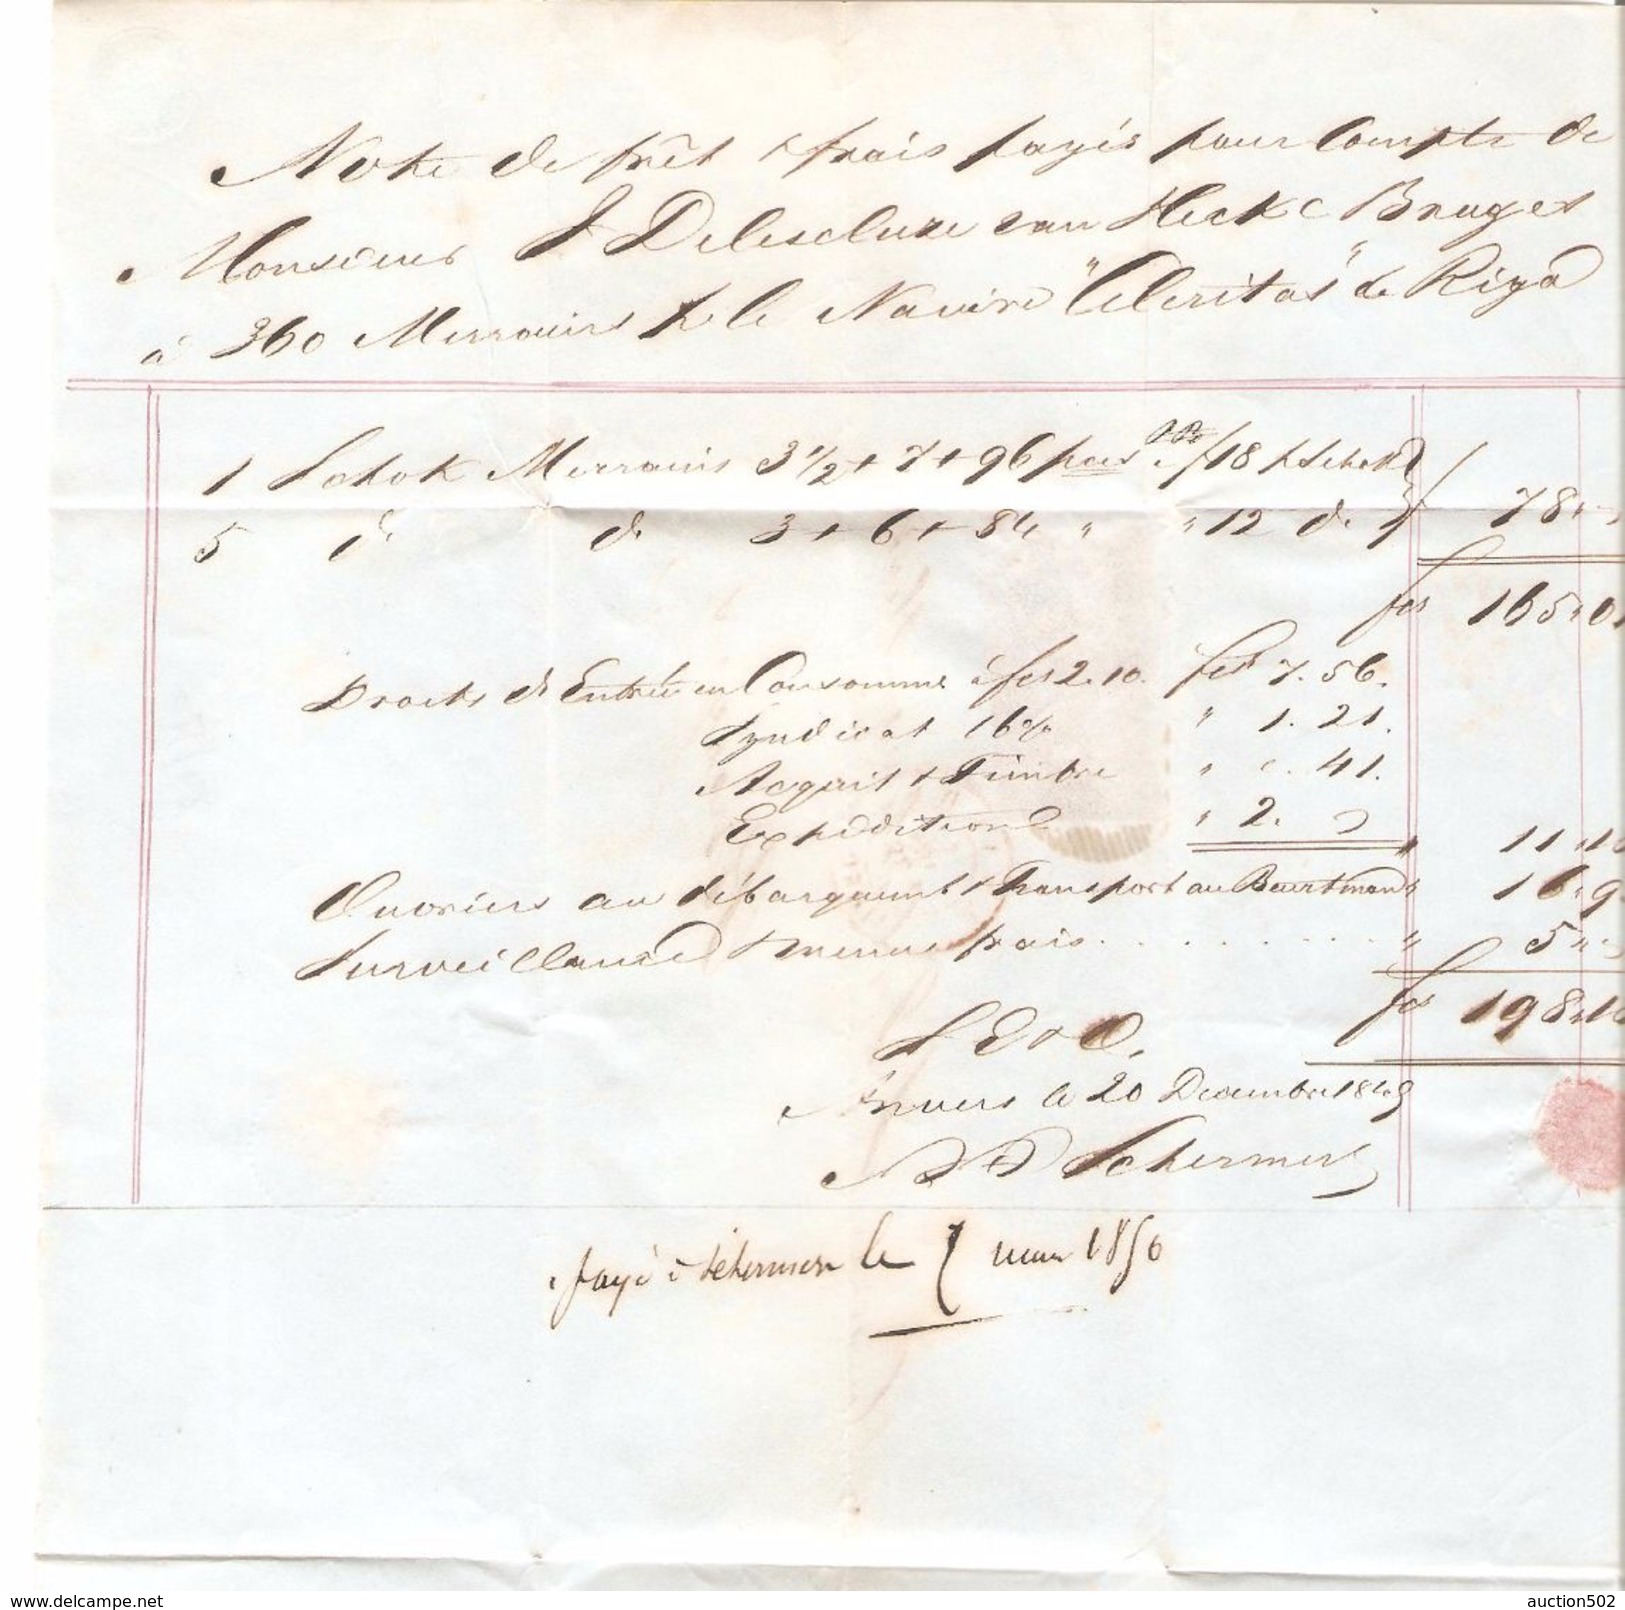 Note de frêt & frais payés pour Compte de
Monsieur J Delescluze van Hecke Bruges
à 360 Merrains p. le Navire "Celeritas" de Riga
1 Schok Merrains 3 1/2 + 7 + 96 pour f 18 p Schok
5 do do 3 + 6 + 84 " " 12 do f 78 " -
fcs 165 " 0
Droits d'Entrée en Consomme à fcs 2.10. fcs 7.56.
Syndicat 16% " 1.21.
Acquit & Timbre " . 41.
Expédition " 2. " 11 " 18
Ouvriers au débarquement & Transport au Beurtman " 16 " 9
Surveillance & menus frais . . . . . . . . " 5 " -
fcs 198 " 1
S E & O.
Anvers le 20 Decembre 1849
Schermers
payé à Schermers le 7 mars 1850
www.delcampe.net
auction502